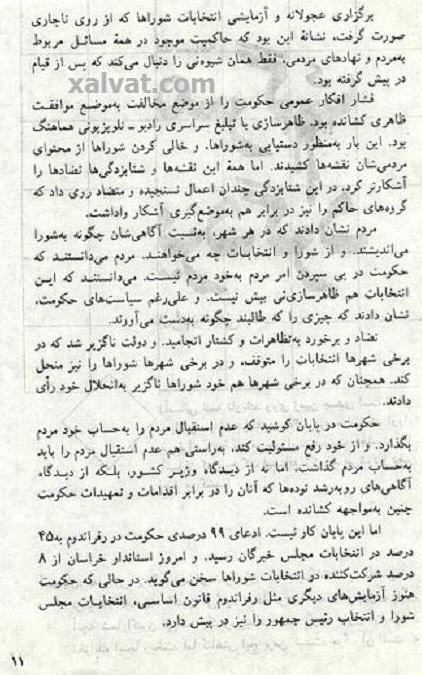 برگزاری عجولانه و آزمایشی انتخابات شوراها که از روی ناچاری
صورت گرفت، نشانهٔ این بود که حاکمیت موجود در همهٔ مسائل مربوط
به‌مردم و نهادهای مردمی، فقط همان شیوه‌ئی را دنبال می‌کند که پس از قیام
در پیش گرفته بود.
xalvat.com
فشار افکار عمومی حکومت را از موضع مخالفت به‌موضع موافقت
ظاهری کشانده بود. ظاهرسازی با تبلیغ سراسری رادیو ـ تلویزیونی هماهنگ
بود. این بار به‌منظور دستیابی به‌شوراها، و خالی کردن شوراها از محتوای
مردمی‌شان نقشه‌ها کشیدند. اما همهٔ این نقشه‌ها و شتابزدگی‌ها تضادها را
آشکارتر کرد. در این شتابزدگی چندان اعمال نسنجیده و متضاد روی داد که
گروه‌های حاکم را نیز در برابر هم به‌موضع‌گیری آشکار واداشت.
مردم نشان دادند که در هر شهر، به‌نسبت آگاهی‌شان چگونه به‌شورا
می‌اندیشند. و از شورا و انتخابات چه می‌خواهند. مردم می‌دانستند که
حکومت در پی سپردن امر مردم به‌خود مردم نیست. می‌دانستند که این
انتخابات هم ظاهرسازی‌ئی بیش نیست. و علی‌رغم سیاست‌های حکومت،
نشان دادند که چیزی را که طالبند چگونه به‌دست می‌آورند.
تضاد و برخورد به‌تظاهرات و کشتار انجامید. و دولت ناگزیر شد که در
برخی شهرها انتخابات را متوقف، و در برخی شهرها شوراها را نیز منحل
کند. همچنان که در برخی شهرها هم خود شوراها ناگزیر به‌انحلال خود رأی
دادند.
حکومت در پایان کوشید که عدم استقبال مردم را به‌حساب خود مردم
بگذارد. و از خود رفع مسئولیت کند. به‌راستی هم عدم استقبال مردم را باید
به‌حساب مردم گذاشت. اما نه از دیدگاه وزیر کشور، بلکه از دیدگاه
آگاهی‌های روبه‌رشد توده‌ها که آنان را در برابر اقدامات و تمهیدات حکومت
چنین به‌مواجهه کشانده است.
اما این پایان کار نیست. ادعای ۹۹ درصدی حکومت در رفراندوم به‌۴۵
درصد در انتخابات مجلس خبرگان رسید. و امروز استاندار خراسان از ۸
درصد شرکت‌کننده در انتخابات شوراها سخن می‌گوید. در حالی که حکومت
هنوز آزمایش‌های دیگری مثل رفراندوم قانون اساسی، انتخابات مجلس
شورا و انتخاب رئیس جمهور را نیز در پیش دارد.
۱۱